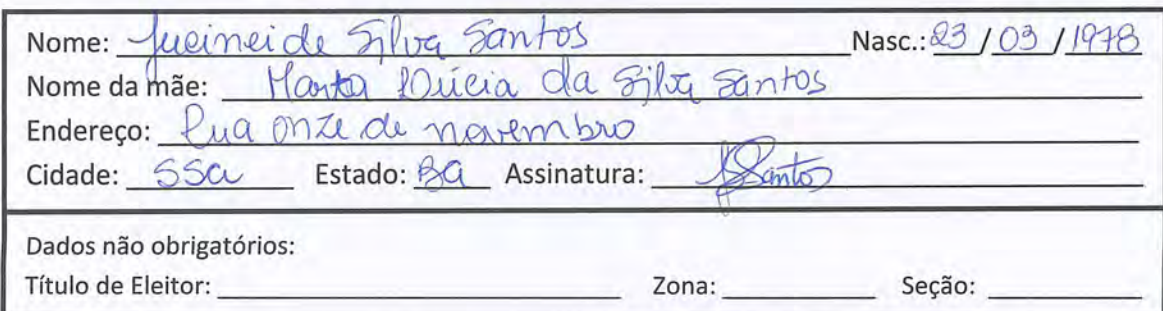 Nome: Jucineide Silva Santos Nasc.: 23 / 03 / 1978
Nome da mãe: Marta Lúcia da Silva Santos
Endereço: Rua onze de novembro
Cidade: SSa Estado: Ba Assinatura: Santos
Dados não obrigatórios:
Título de Eleitor: Zona: Seção: